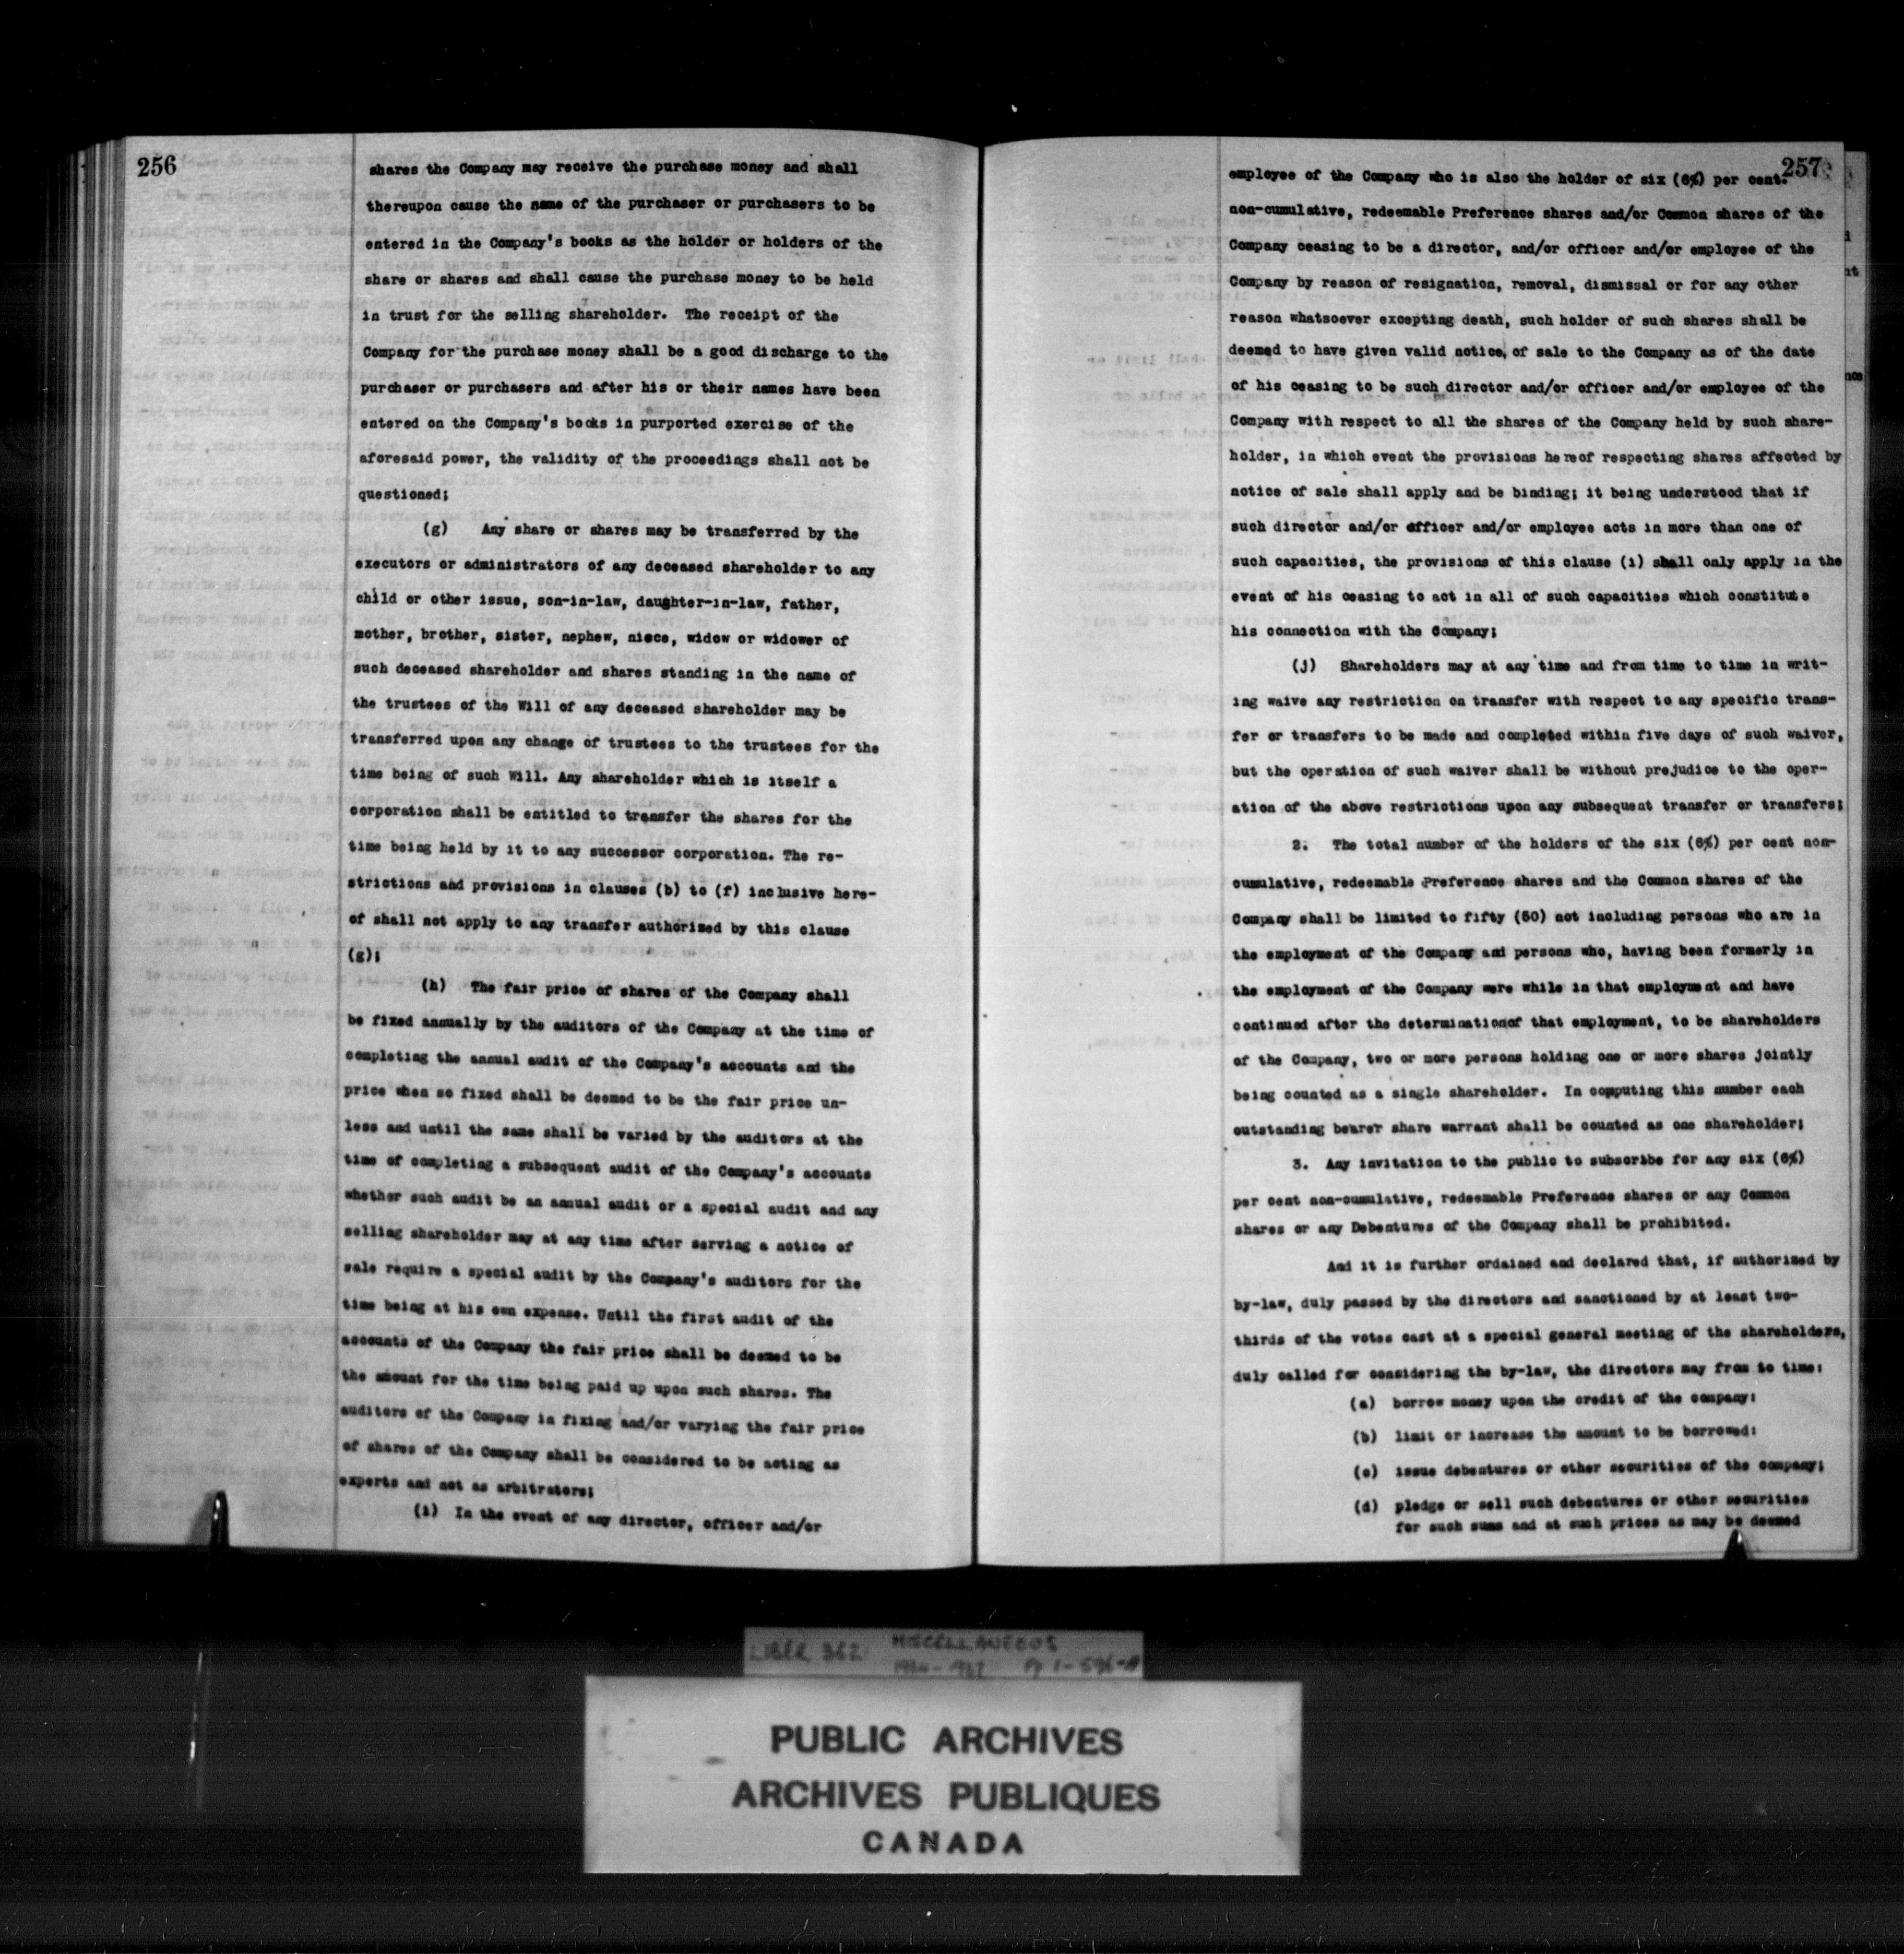 256
shares the Company may receive the purchase money and shall
thereupon cause the name of the purchaser or purchasers to be
entered in the Company's books as the holder or holders of the
share or shares and shall cause the purchase money to be held
in trust for the selling shareholder. The receipt of the
Company for the purchase money shall be a good discharge to the
purchaser or purchasers and after his or their names have been
entered on the Company's books in purported exercise of the
aforesaid power, the validity of the proceedings shall not be
questioned;
(g) Any share or shares may be transferred by the
executors or administrators of any deceased shareholder to any
child or other issue, son-in-law, daughter-in-law, father,
mother, brother, sister, nephew, niece, widow or widower of
such deceased shareholder and shares standing in the name of
the trustees of the Will of any deceased shareholder may be
transferred upon any change of trustees to the trustees for the
time being of such Will. Any shareholder which is itself a
corporation shall be entitled to transfer the shares for the
time being held by it to any successor corporation. The re-
strictions and provisions in clauses (b) to (f) inclusive here-
of shall not apply to any transfer authorized by this clause
(g);
(h) The fair price of shares of the Company shall
be fixed annually by the auditors of the Company at the time of
completing the annual audit of the Company's accounts and the
price when so fixed shall be deemed to be the fair price un-
less and until the same shall be varied by the auditors at the
time of completing a subsequent audit of the Company's accounts
whether such audit be an annual audit or a special audit and any
selling shareholder may at any time after serving a notice of
sale require a special audit by the Company's auditors for the
time being at his own expense. Until the first audit of the
accounts of the Company the fair price shall be deemed to be
the amount for the time being paid up upon such shares. The
auditors of the Company in fixing and/or varying the fair price
of shares of the Company shall be considered to be acting as
experts and not as arbitrators;
(i) In the event of any director, officer and/or
257
employee of the Company who is also the holder of six (6%) per cent.
non-cumulative, redeemable Preference shares and/or Common shares of the
Company ceasing to be a director, and/or officer and/or employee of the
Company by reason of resignation, removal, dismissal or for any other
reason whatsoever excepting death, such holder of such shares shall be
deemed to have given valid notice of sale to the Company as of the date
of his ceasing to be such director and/or officer and/or employee of the
Company with respect to all the shares of the Company held by such share-
holder, in which event the provisions hereof respecting shares affected by
notice of sale shall apply and be binding; it being understood that if
such director and/or officer and/or employee acts in more than one of
such capacities, the provisions of this clause (i) shall only apply in the
event of his ceasing to act in all of such capacities which constitute
his connection with the Company;
(j) Shareholders may at any time and from time to time in writ-
ing waive any restriction on transfer with respect to any specific trans-
fer or transfers to be made and completed within five days of such waiver,
but the operation of such waiver shall be without prejudice to the oper-
ation of the above restrictions upon any subsequent transfer or transfers;
2. The total number of the holders of the six (6%) per cent non-
cumulative, redeemable Preference shares and the Common shares of the
Company shall be limited to fifty (50) not including persons who are in
the employment of the Company and persons who, having been formerly in
the employment of the Company were while in that employment and have
continued after the determinationof that employment, to be shareholders
of the Company, two or more persons holding one or more shares jointly
being counted as a single shareholder. In computing this number each
outstanding bearer share warrant shall be counted as one shareholder;
3. Any invitation to the public to subscribe for any six (6%)
per cent non-cumulative, redeemable Preference shares or any Common
shares or any Debentures of the Company shall be prohibited.
And it is further ordained and declared that, if authorized by
by-law, duly passed by the directors and sanctioned by at least two-
thirds of the votes cast at a special general meeting of the shareholders,
duly called for considering the by-law, the directors may from to time:
(a) borrow money upon the credit of the company:
(b) limit or increase the amount to be borrowed:
(c) issue debentures or other securities of the company;
(d) pledge or sell such debentures or other securities
for such sums and at such prices as may be deemed
LIBER 362 MISCELLANEOUS
Pp 1-596-A
PUBLIC ARCHIVES
ARCHIVES PUBLIQUES
CANADA